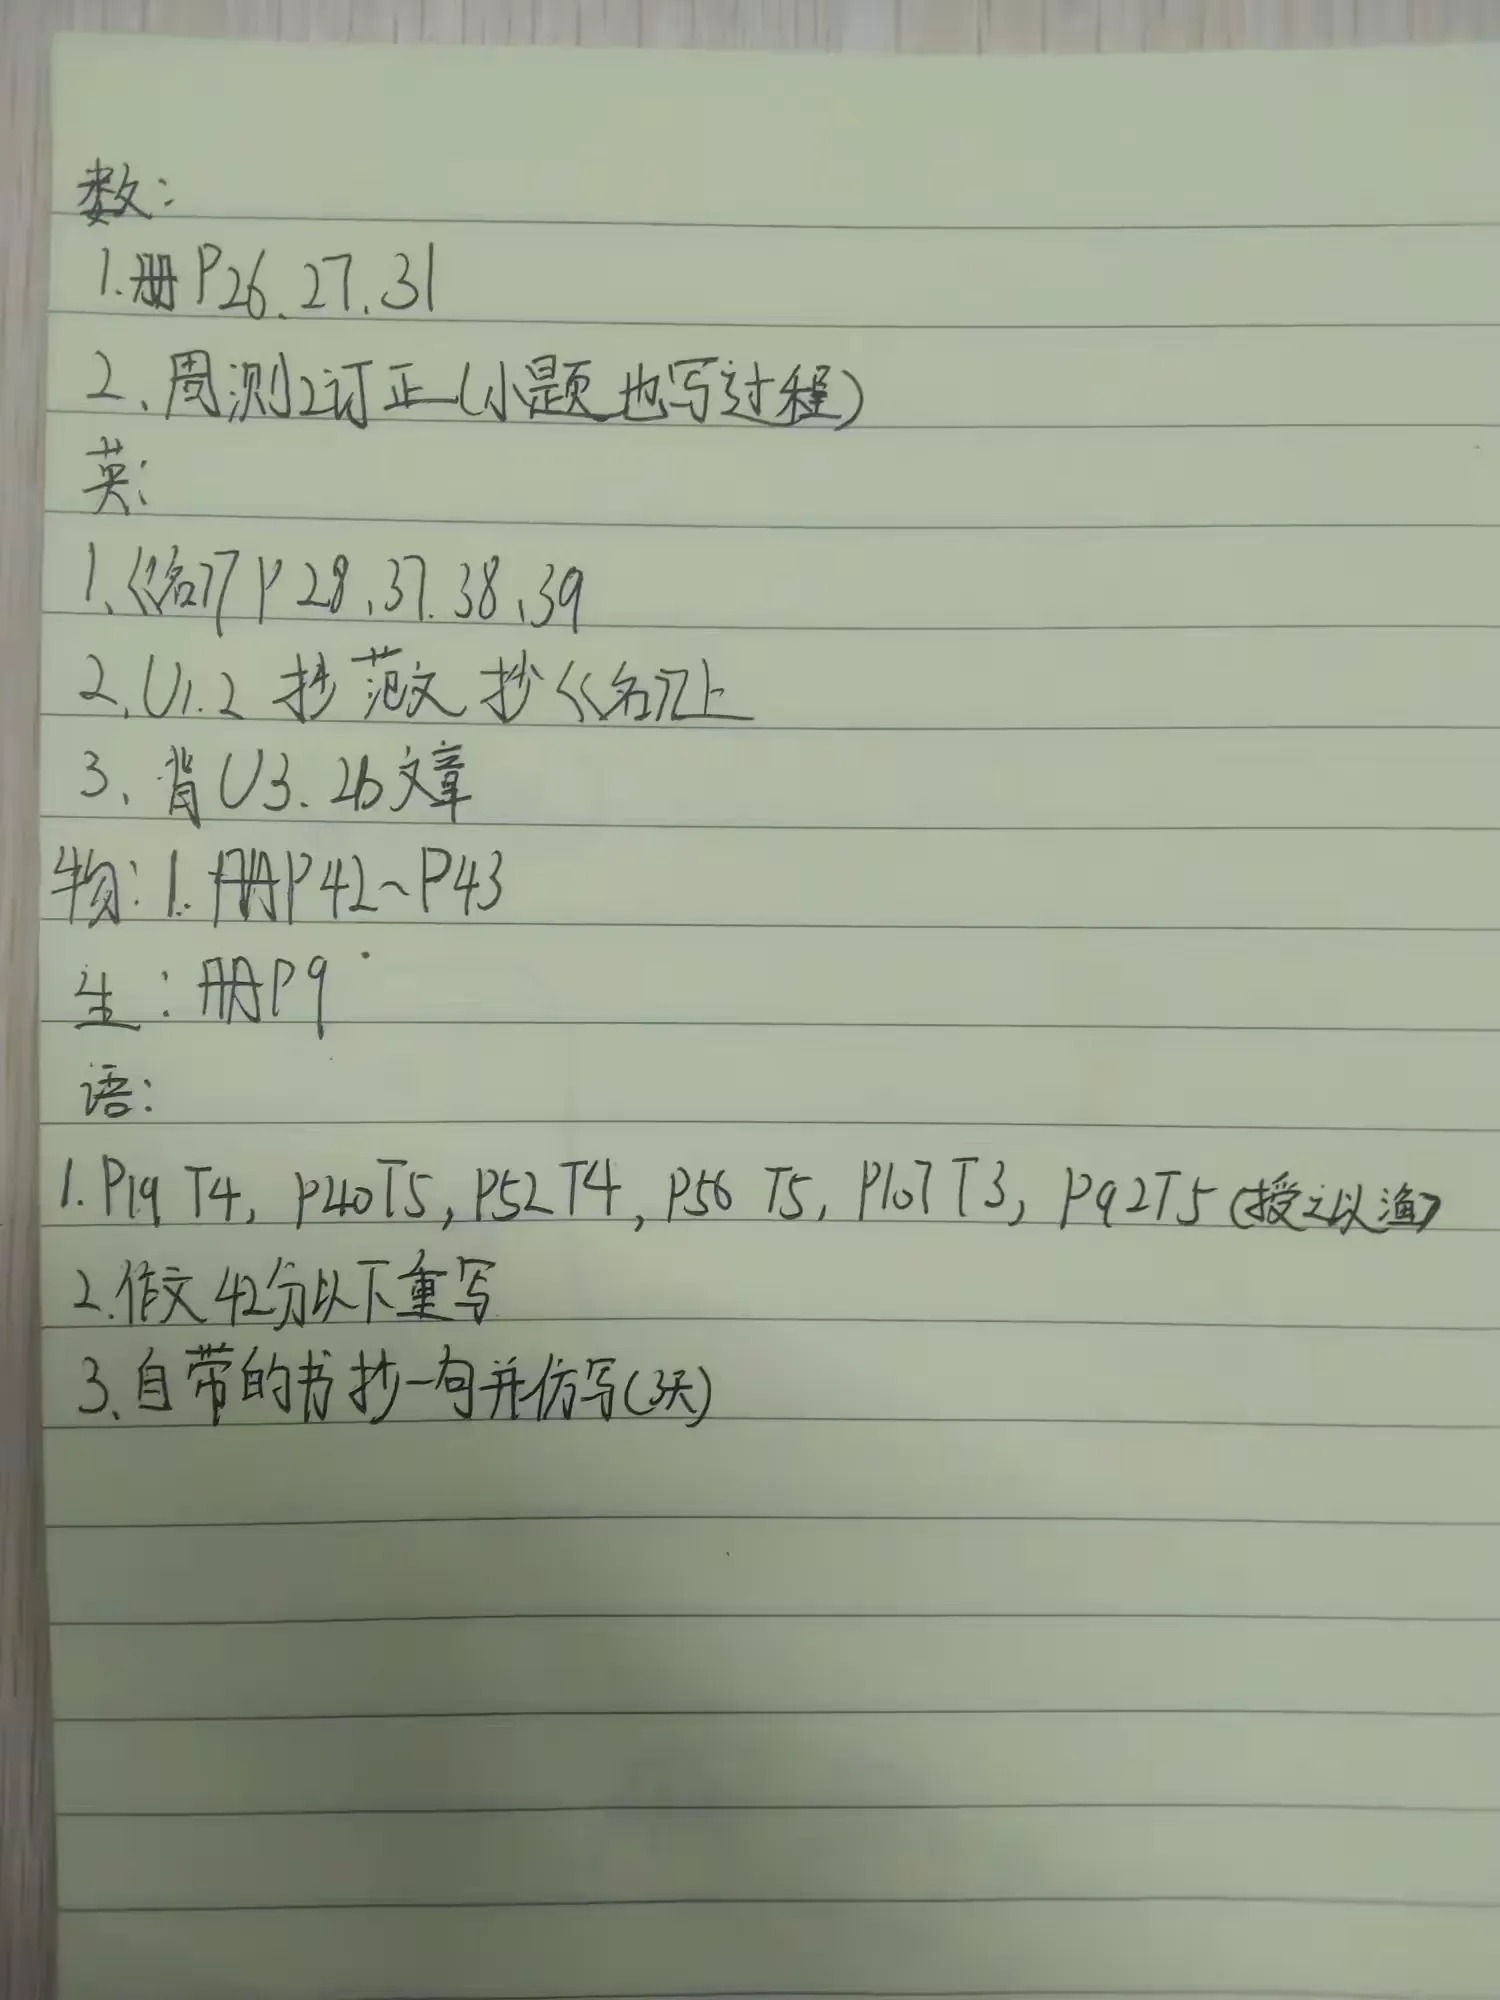 数:
1.册P26.27.31
2、周测2订正(小题也写过程)
英:
1、《名》P28、37.38、39
2、U1.2 抄范文 抄《名》上
3、背U3.2b文章
物:1.册P42~P43
生:册P9
语:
1.P19 T4, P40T5, P52T4, P56 T5, P107T3, P92T5(授之以渔)
2.作文42分以下重写
3、自带的书抄一句并仿写(3天)